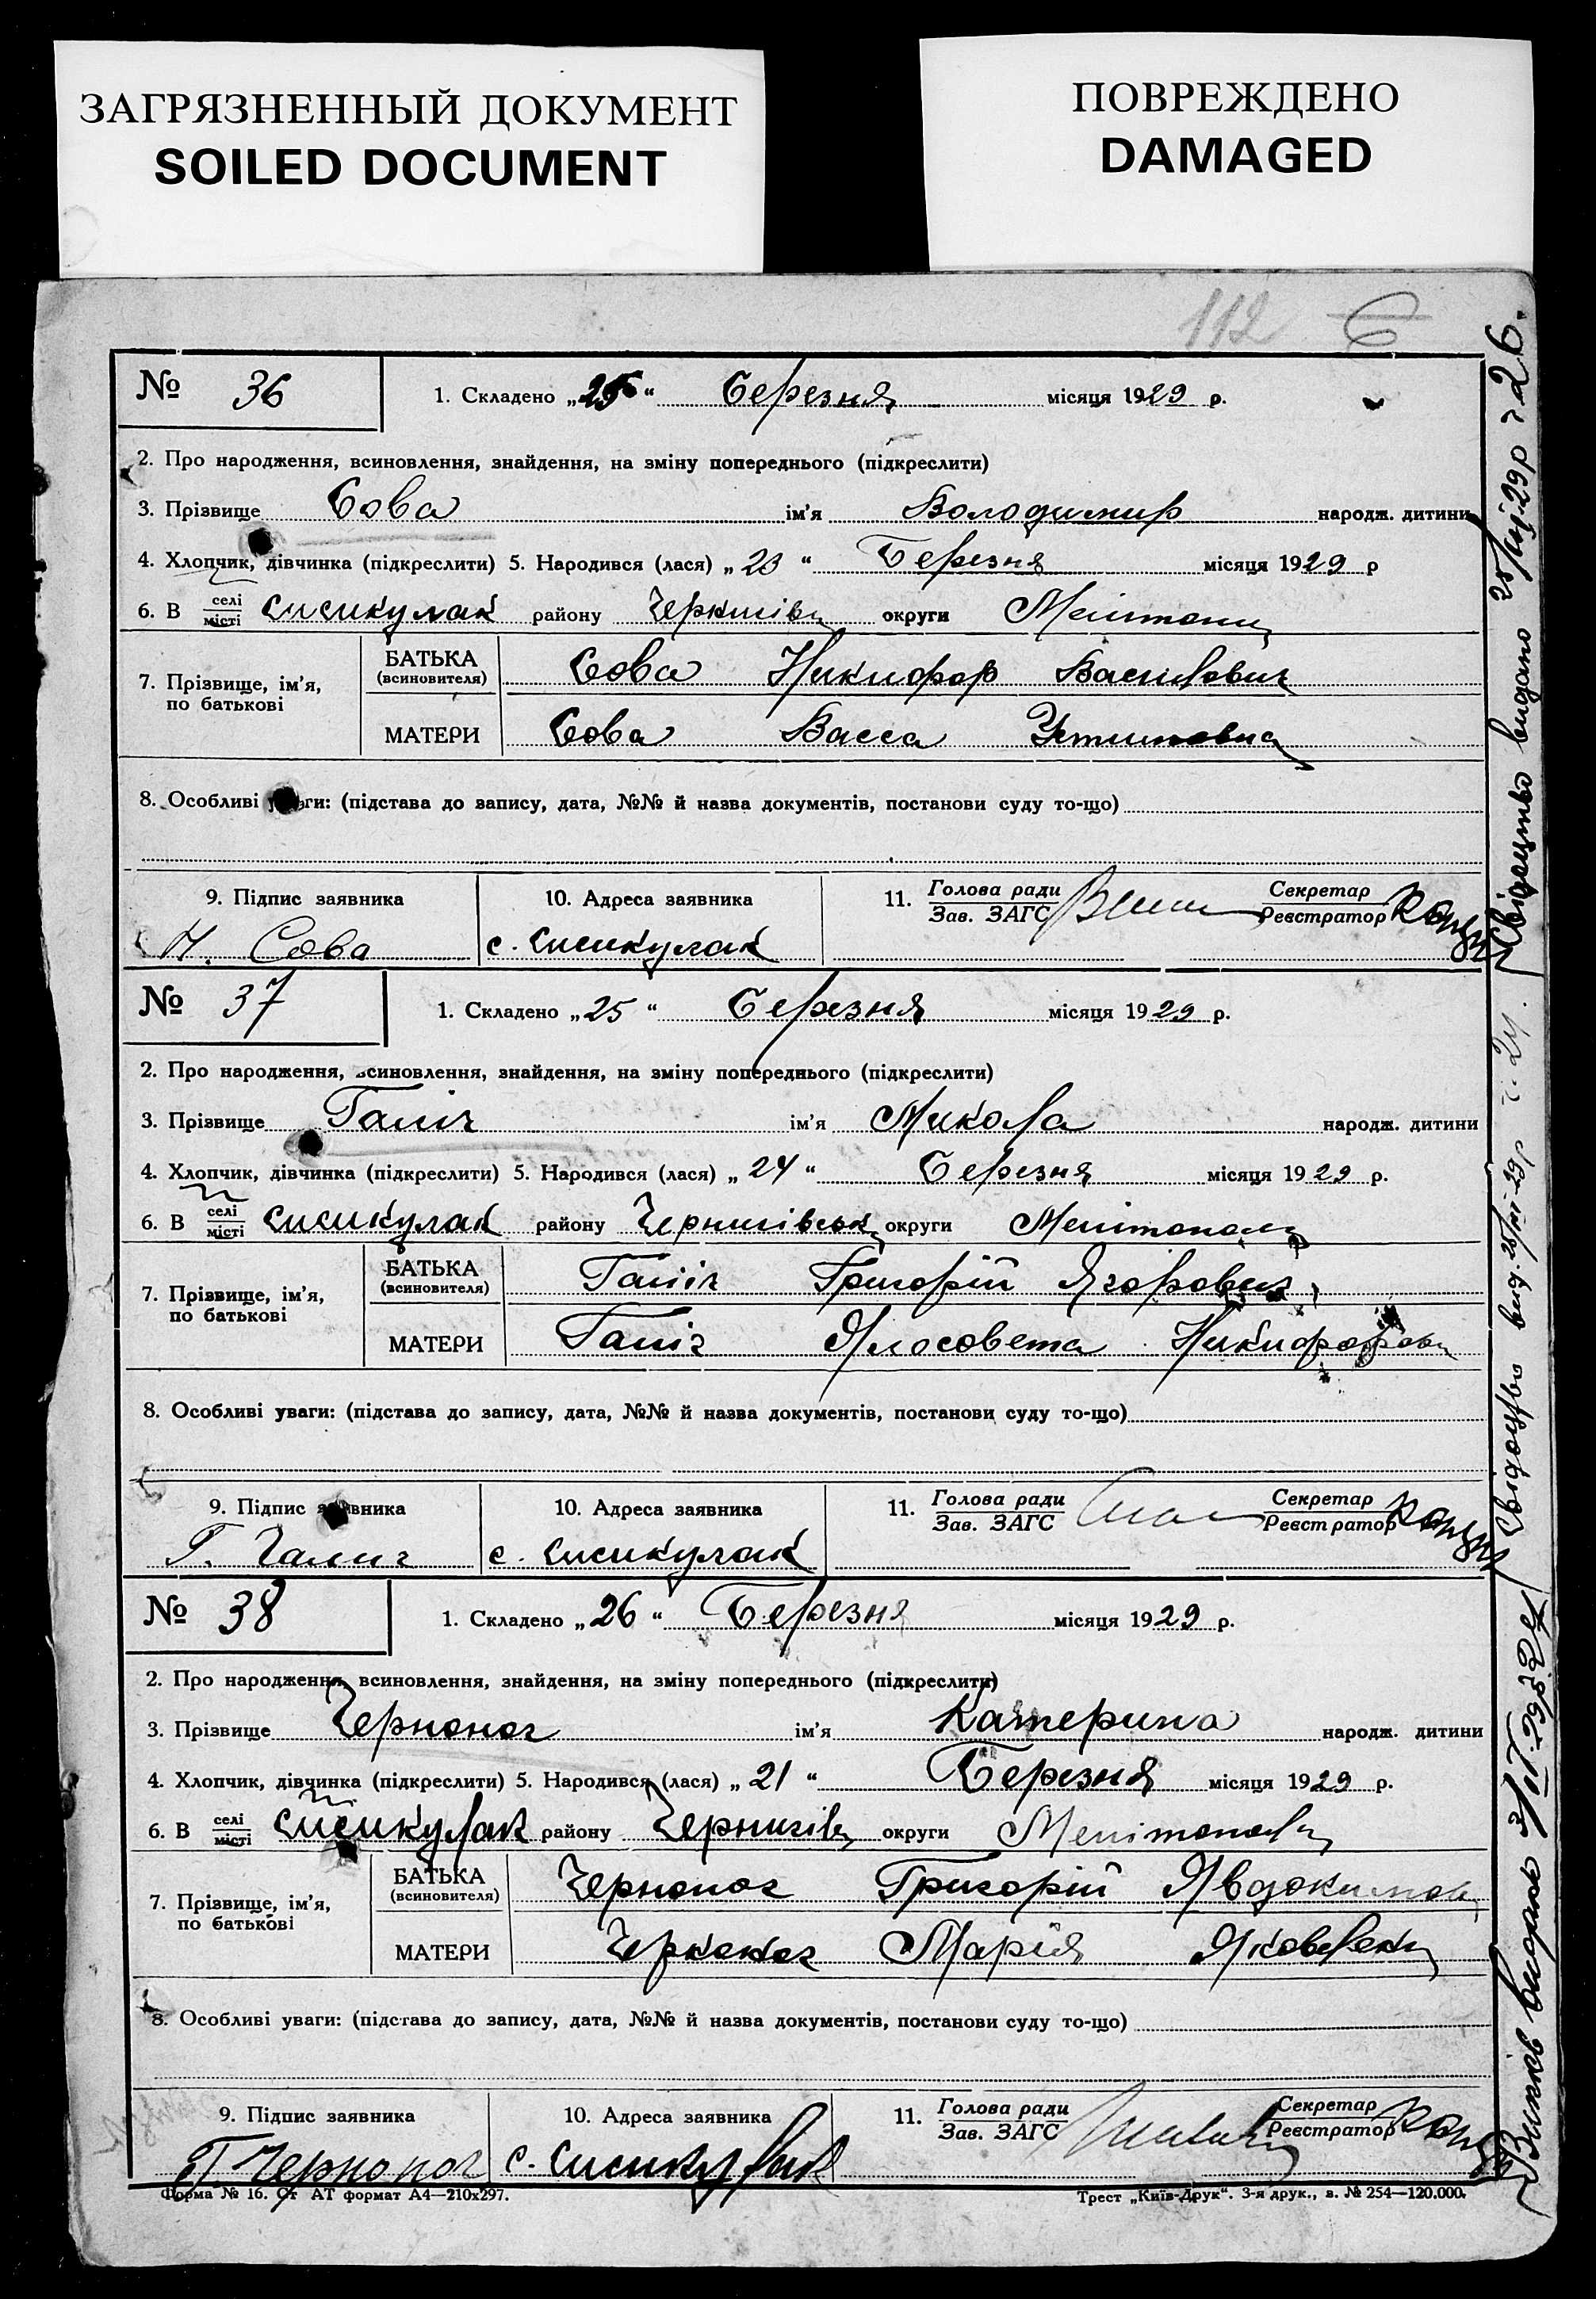 ЗАГРЯЗНЕННЫЙ ДОКУМЕНТ
SOILED DOCUMENT
ПОВРЕЖДЕНО
DAMAGED
112 6
№ 36
1. Складено „25“ Березня місяця 1929 р.
2. Про народження, всиновлення, знайдення, на зміну попереднього (підкреслити)
3. Прізвище Сова ім'я Володимир народж. дитини
4. Хлопчик, дівчинка (підкреслити) 5. Народився (лася) „23“ Березня місяця 1929 р
6. В селі/місті Сисикулак району Чернигівс округи Мелітопол
7. Прізвище, ім'я, по батькові
БАТЬКА (всиновителя) Сова Никифор Васильович
МАТЕРИ Сова Васса Устимовна
8. Особливі уваги: (підстава до запису, дата, №№ й назва документів, постанови суду то-що)
9. Підпис заявника 10. Адреса заявника 11. Голова ради/Зав. ЗАГС Секретар/Реєстратор
Н. Сова с. Сисикулак
№ 37
1. Складено „25“ Березня місяця 1929 р.
2. Про народження, всиновлення, знайдення, на зміну попереднього (підкреслити)
3. Прізвище Галіч ім'я Микола народж. дитини
4. Хлопчик, дівчинка (підкреслити) 5. Народився (лася) „24“ Березня місяця 1929 р.
6. В селі/місті Сисикулак району Чернигівськ округи Мелітопол
7. Прізвище, ім'я, по батькові
БАТЬКА (всиновителя) Галіч Григорій Ягорович
МАТЕРИ Галіч Ялосовета Никифоровн
8. Особливі уваги: (підстава до запису, дата, №№ й назва документів, постанови суду то-що)
9. Підпис заявника 10. Адреса заявника 11. Голова ради/Зав. ЗАГС Секретар/Реєстратор
Г. Галич с. Сисикулак
№ 38
1. Складено „26“ Березня місяця 1929 р.
2. Про народження, всиновлення, знайдення, на зміну попереднього (підкреслити)
3. Прізвище Черноног ім'я Катерина народж. дитини
4. Хлопчик, дівчинка (підкреслити) 5. Народився (лася) „21“ Березня місяця 1929 р.
6. В селі/місті Сисикулак району Чернигівс округи Мелітопол
7. Прізвище, ім'я, по батькові
БАТЬКА (всиновителя) Черноног Григорій Явдокимов
МАТЕРИ Черноног Марія Яковлевн
8. Особливі уваги: (підстава до запису, дата, №№ й назва документів, постанови суду то-що)
9. Підпис заявника 10. Адреса заявника 11. Голова ради/Зав. ЗАГС Секретар/Реєстратор
Г Черноног с. Сисикулак
Форма № 16. Ст АТ формат А4—210х297.
Трест „Київ-Друк“. 3-я друк., з. № 254—120.000.
Свідоцтво видано 25/III-29р 26.
Свідоцтво вид. 25/III-29р 24.
видано